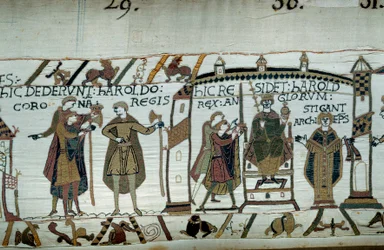 29. 30. 31.
ES:
hIC DEDERVNT: hAROLDO:
CORO NA REGIS
hIC RE SIDET: hAROLD
REX: AN GLORVM:
STIGANT
ARChI EPS